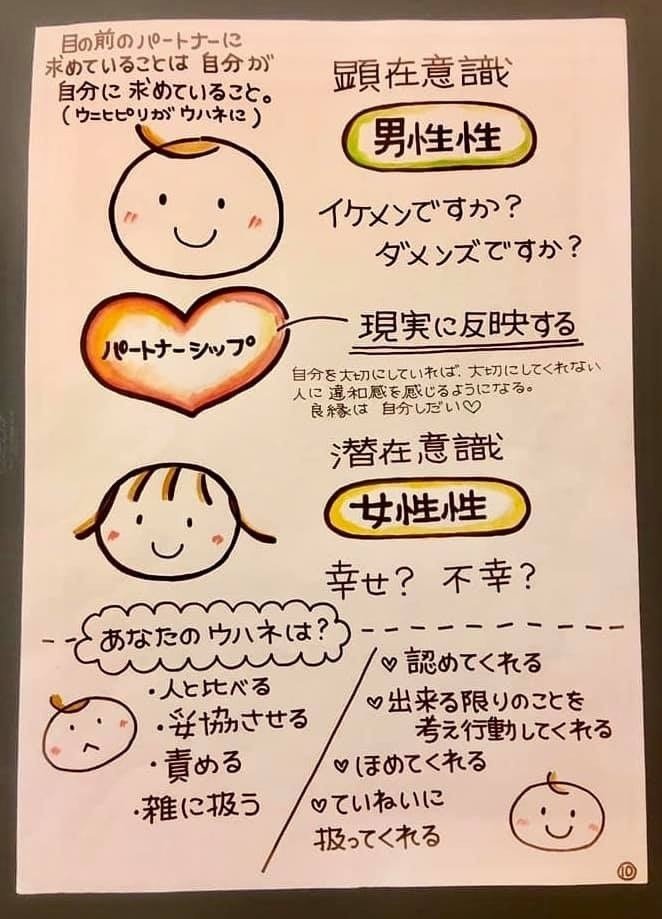 目の前のパートナーに
求めていることは 自分が
自分に 求めていること。
(ウニヒピリが ウハネに)
顕在意識
男性性
イケメンですか?
ダメンズですか?
パートナーシップ
現実に反映する
自分を大切にしていれば、大切にしてくれない
人に 違和感を感じるようになる。
良縁は 自分しだい♡
潜在意識
女性性
幸せ? 不幸?
あなたのウハネは?
・人と比べる
・妥協させる
・責める
・雑に扱う
♡認めてくれる
♡出来る限りのことを
考え行動してくれる
♡ほめてくれる
♡ていねいに
扱ってくれる
⑩